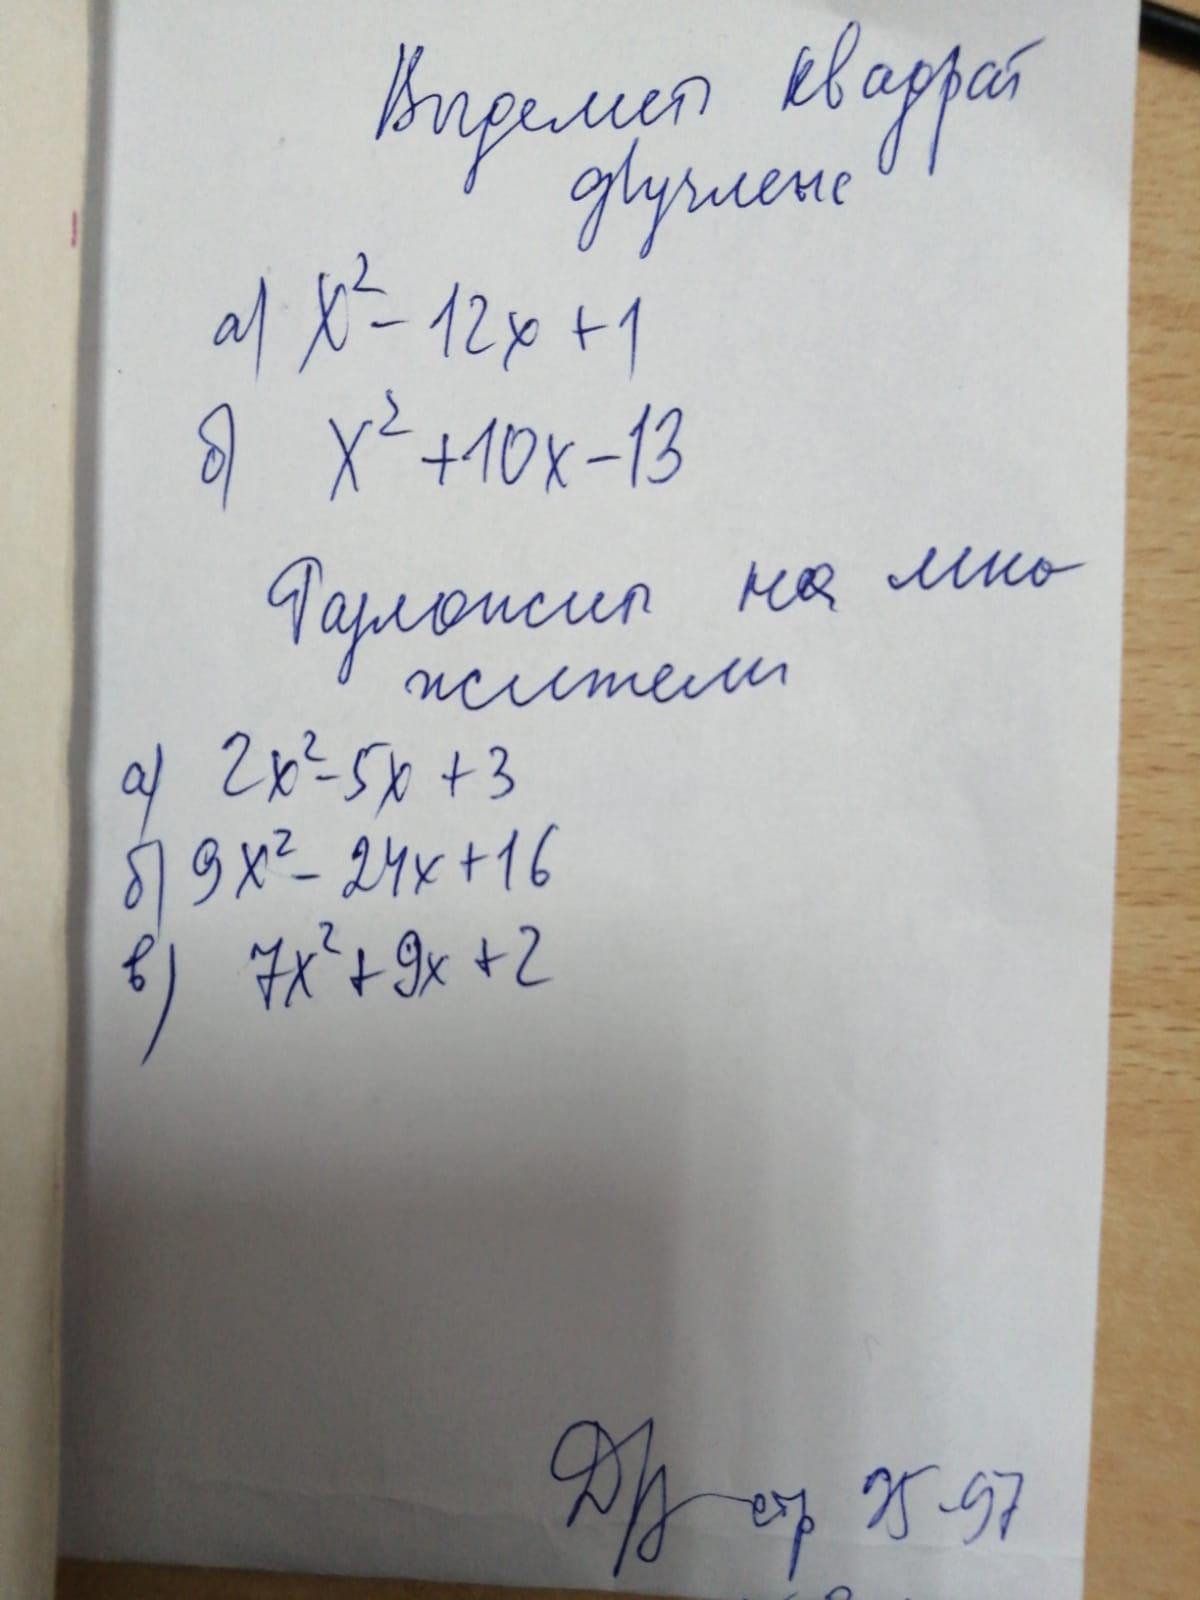 Выделить квадрат
двучлена
а) x² - 12x + 1
б) x² + 10x - 13
Разложить на мно
жители
а) 2x² - 5x + 3
б) 9x² - 24x + 16
в) 7x² + 9x + 2
Д/з стр 95-97